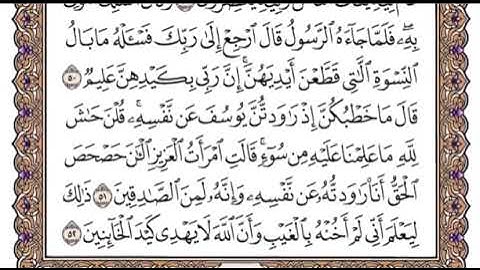 بِهِۦ ۖ فَلَمَّا جَآءَهُ ٱلرَّسُولُ قَالَ ٱرْجِعْ إِلَىٰ رَبِّكَ فَسْـَٔلْهُ مَا بَالُ
ٱلنِّسْوَةِ ٱلَّـٰتِى قَطَّعْنَ أَيْدِيَهُنَّ ۚ إِنَّ رَبِّى بِكَيْدِهِنَّ عَلِيمٌ ٥٠
قَالَ مَا خَطْبُكُنَّ إِذْ رَٰوَدتُّنَّ يُوسُفَ عَن نَّفْسِهِۦ ۚ قُلْنَ حَـٰشَ
لِلَّهِ مَا عَلِمْنَا عَلَيْهِ مِن سُوٓءٍ ۚ قَالَتِ ٱمْرَأَتُ ٱلْعَزِيزِ ٱلْـَٔـٰنَ حَصْحَصَ
ٱلْحَقُّ أَنَا۠ رَٰوَدتُّهُۥ عَن نَّفْسِهِۦ وَإِنَّهُۥ لَمِنَ ٱلصَّـٰدِقِينَ ٥١ ذَٰلِكَ
لِيَعْلَمَ أَنِّى لَمْ أَخُنْهُ بِٱلْغَيْبِ وَأَنَّ ٱللَّهَ لَا يَهْدِى كَيْدَ ٱلْخَآئِنِينَ ٥٢